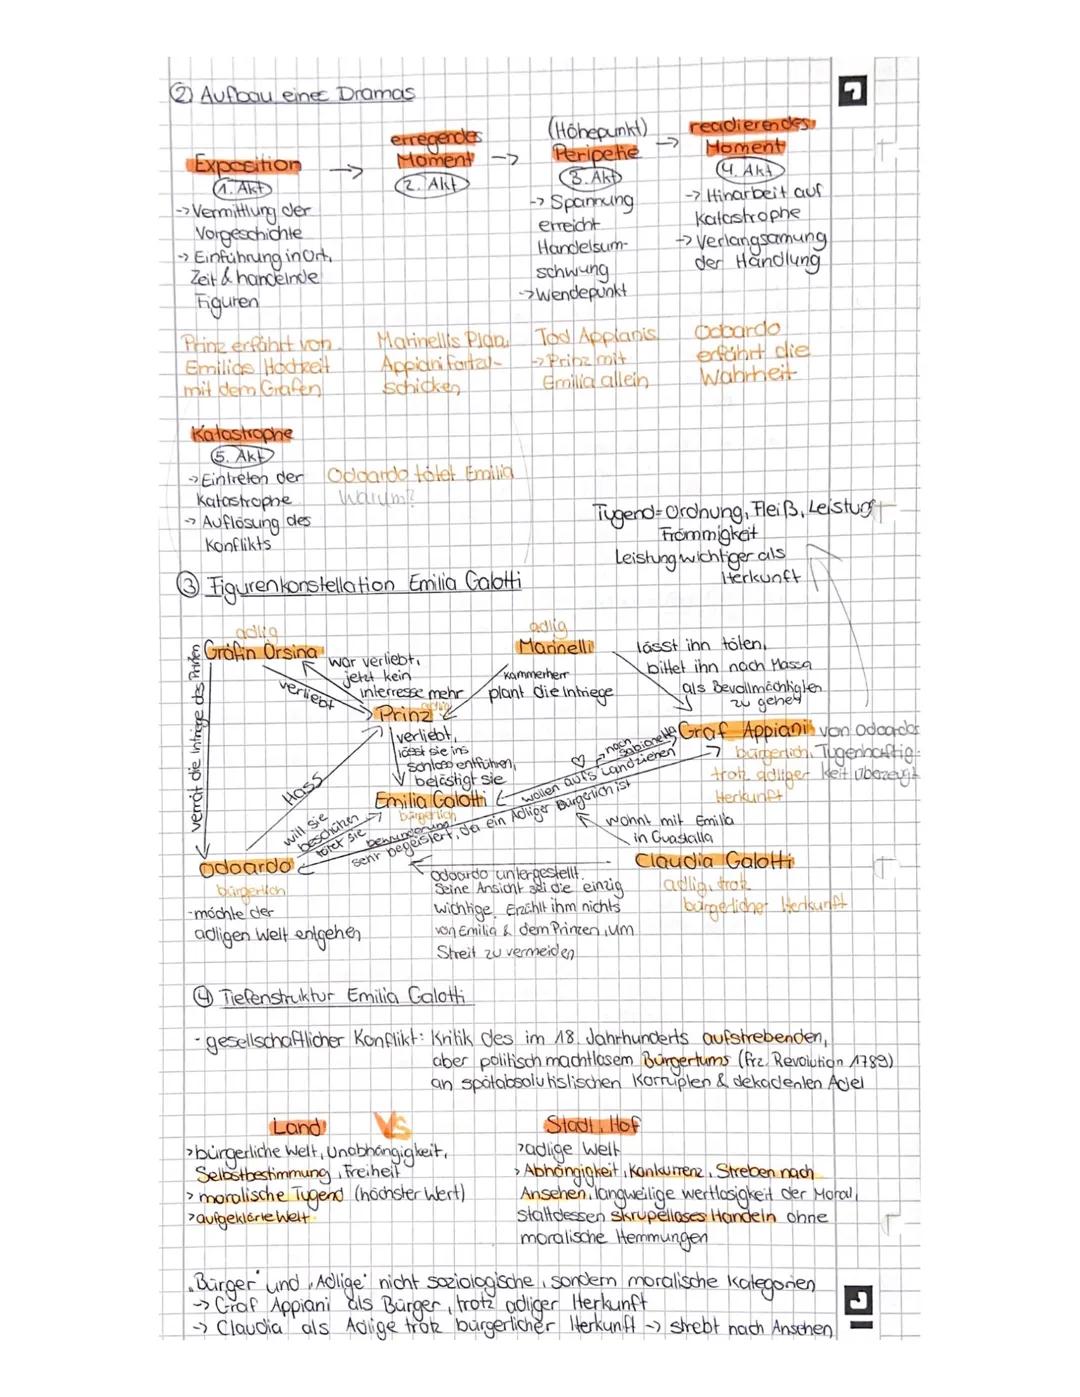 ② Aufbau eines Dramas
Exposition
1. Akt
-> Vermittlung der
Vorgeschichte
-> Einführung in Ort,
Zeit & handelnde
Figuren
->
erregendes
Moment
2. Akt
->
(Höhepunkt)
Peripetie
3. Akt
-> Spannung
erreicht
Handelsum-
schwung
-> Wendepunkt
->
readierendes
Moment
4. Akt
-> Hinarbeit auf
Katastrophe
-> Verlangsamung
der Handlung
Prinz erfährt von
Emilias Hochzeit
mit dem Grafen
Marinellis Plan,
Appiani fortzu-
schicken,
Tod Appianis
-> Prinz mit
Emilia allein
Odoardo
erfährt die
Wahrheit
Katastrophe
5. Akt
-> Eintreten der
Katastrophe
-> Auflösung des
Konflikts
Odoardo tötet Emilia
Warum?
Tugend = Ordnung, Fleiß, Leistung
Frömmigkeit
Leistung wichtiger als
Herkunft
③ Figurenkonstellation Emilia Galotti
adlig
Gräfin Orsina
war verliebt,
jetzt kein
interresse mehr
verliebt
adlig
Marinelli
Kammerherr
plant die Intriege
lässt ihn töten,
bittet ihn nach Massa
als Bevollmächtigten
zu gehen
verrät die Intriege des Prinzen
adlig
Prinz
verliebt,
lässt sie ins
schloss entführen,
belästigt sie
Hass
Graf Appiani
von Odoardos
Tugenhaftig-
keit überzeugt
bürgerlich,
trotz adliger
Herkunft
nach Sabionetta
wollen auf's Land ziehen
Emilia Galotti
bürgerlich
will sie
beschützen
tötet sie
bewunderung
sehr begeistert, da ein Adliger Bürgerlich ist
wohnt mit Emilia
in Guastalla
Claudia Galotti
adlig, trotz
bürgerlicher Herkunft
Odoardo
bürgerlich
- möchte der
adligen Welt entgehen
Odoardo untergestellt.
Seine Ansicht sei die einzig
wichtige. Erzählt ihm nichts
von Emilia & dem Prinzen, um
Streit zu vermeiden
④ Tiefenstruktur Emilia Galotti
- gesellschaftlicher Konflikt: Kritik des im 18. Jahrhunderts aufstrebenden,
aber politisch machtlosem Bürgertums (frz. Revolution 1789)
an spätabsolutistischen Korrupten & dekadenten Adel
Land
VS
Stadt, Hof
> bürgerliche Welt, Unabhängigkeit,
Selbstbestimmung, Freiheit
> moralische Tugend (höchster Wert)
> aufgeklärte Welt
> adlige Welt
> Abhängigkeit, Konkurrenz, Streben nach
Ansehen, langweilige wertlosigkeit der Moral,
stattdessen skrupelloses Handeln ohne
moralische Hemmungen
„Bürger" und „Adlige" nicht soziologische, sondern moralische Kategorien
-> Graf Appiani als Bürger, trotz adliger Herkunft
-> Claudia als Adlige trotz bürgerlicher Herkunft -> strebt nach Ansehen